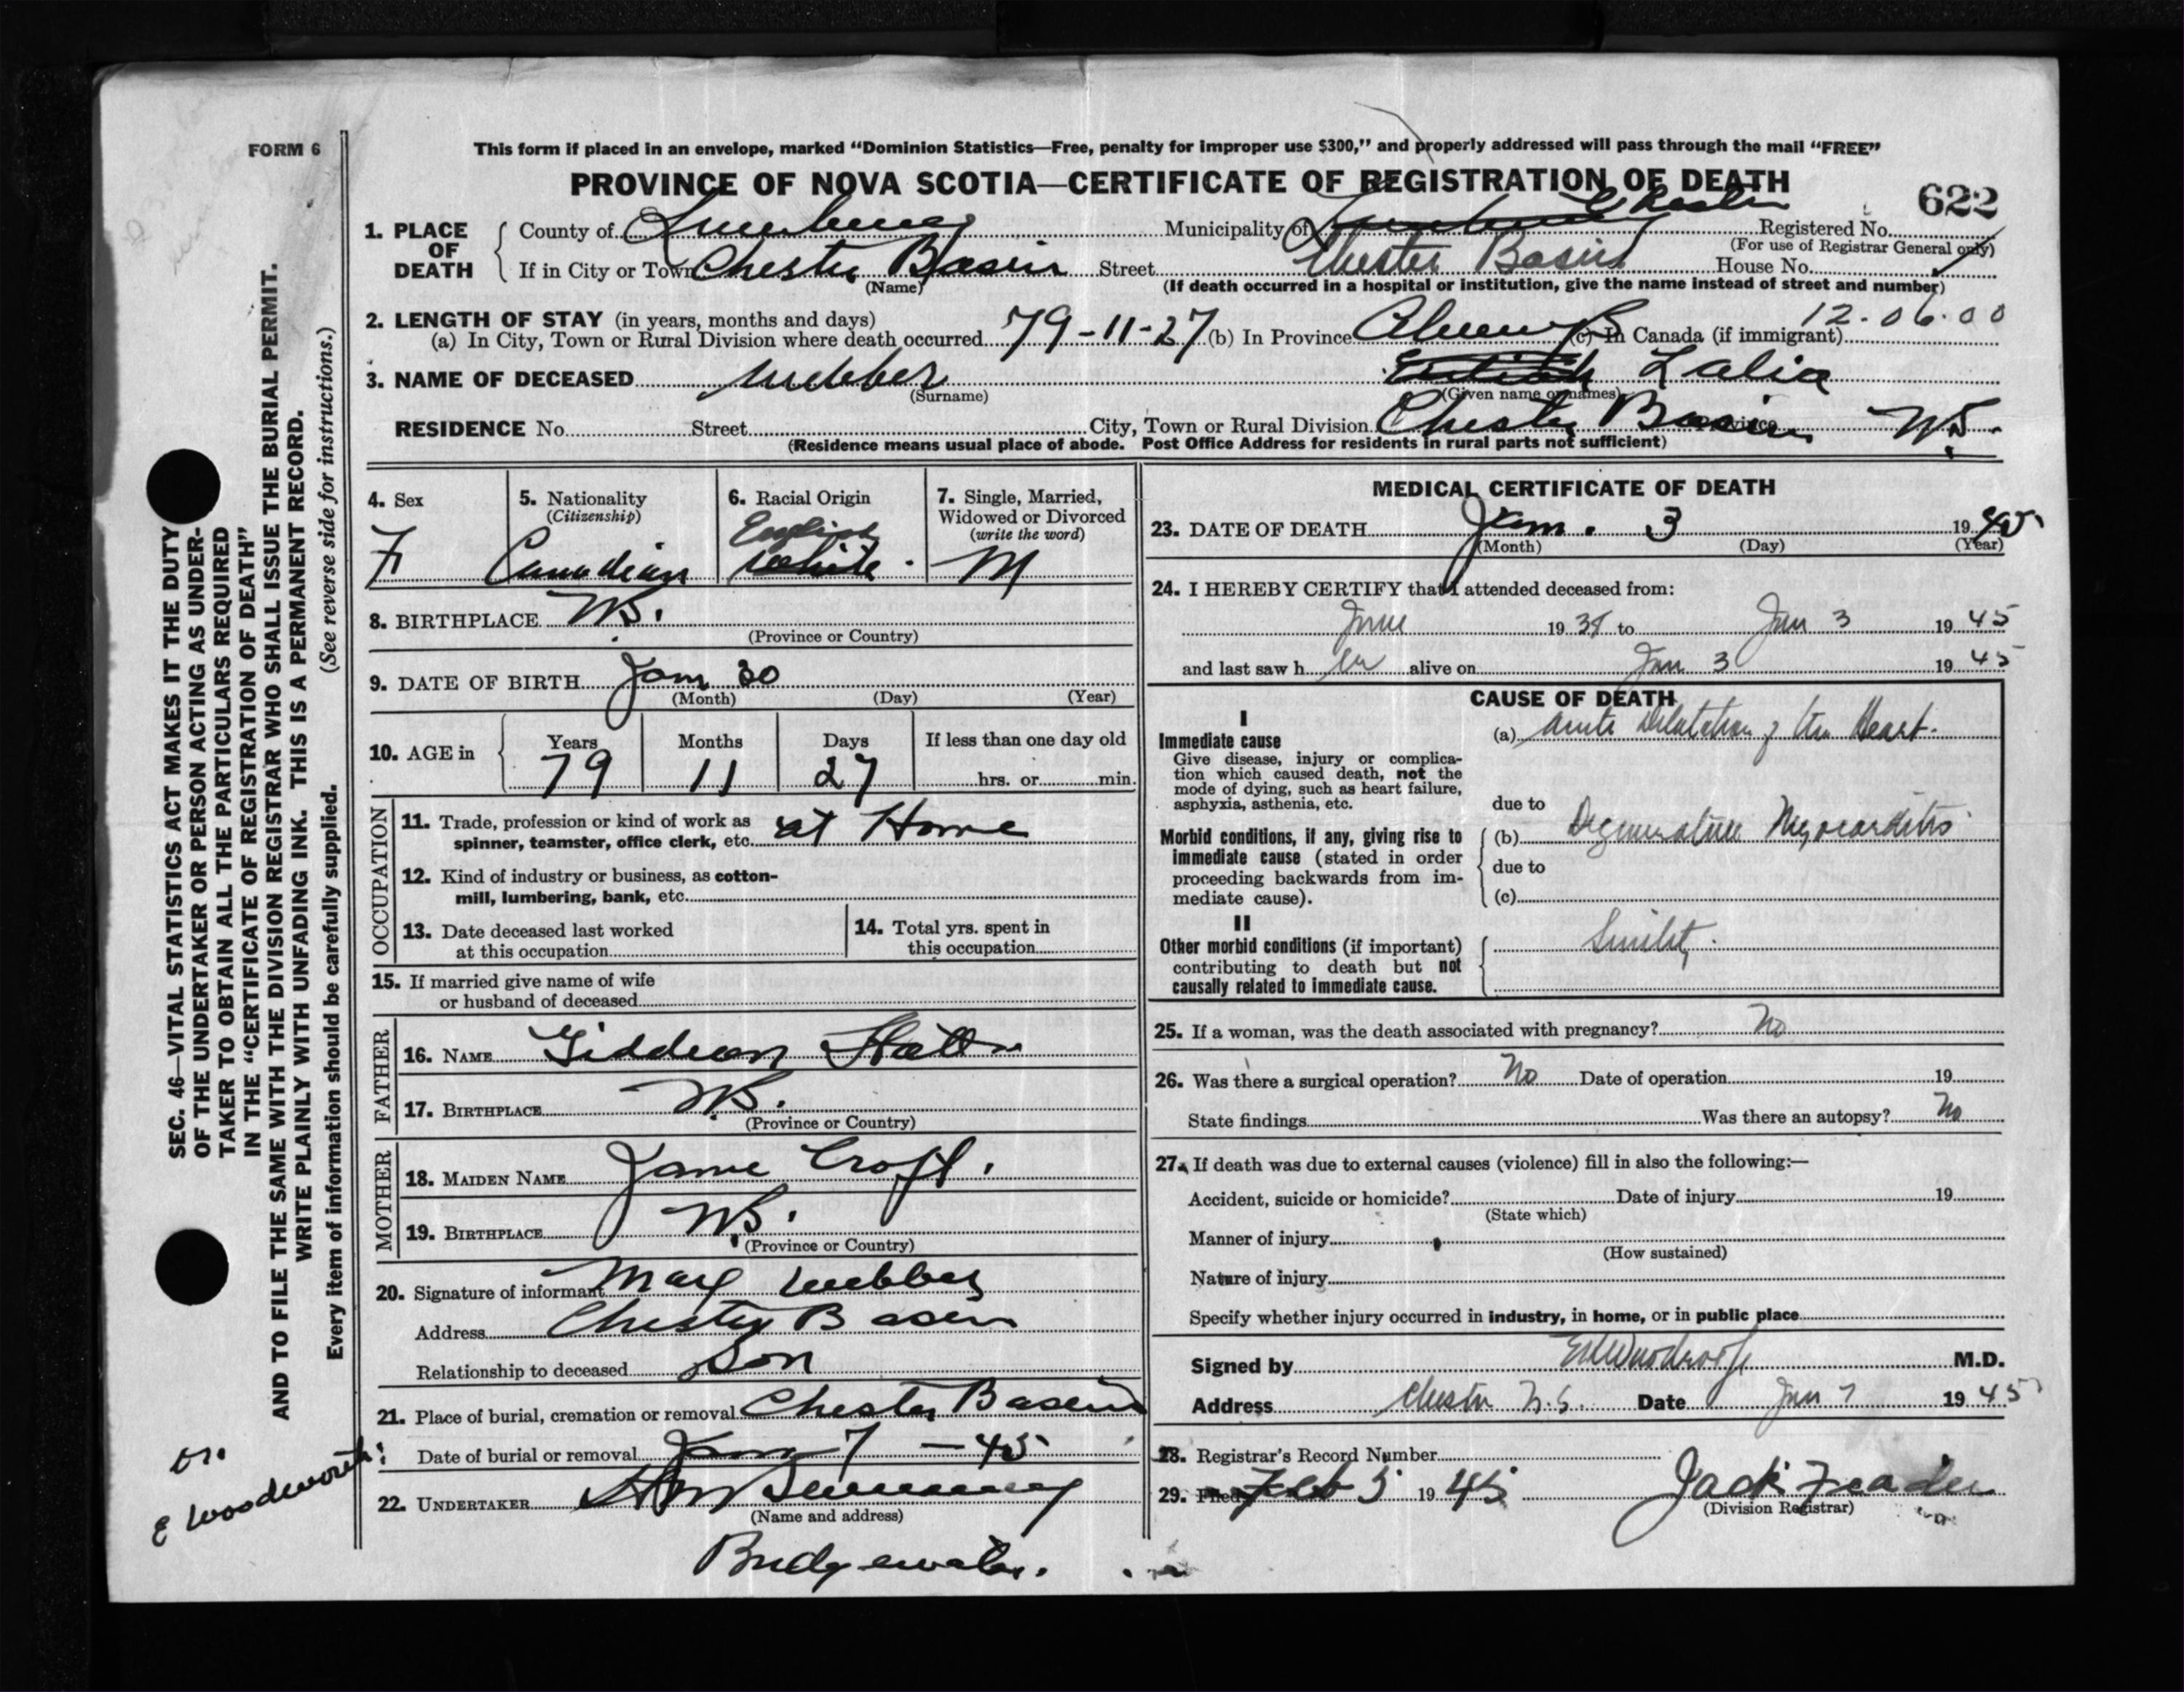 FORM 6
This form if placed in an envelope, marked "Dominion Statistics—Free, penalty for improper use $300," and properly addressed will pass through the mail "FREE"
PROVINCE OF NOVA SCOTIA—CERTIFICATE OF REGISTRATION OF DEATH
622
1. PLACE OF DEATH
County of Lunenburg Municipality of Chester Registered No.
(For use of Registrar General only)
If in City or Town Chester Basin Street Chester Basin House No.
(Name) (If death occurred in a hospital or institution, give the name instead of street and number)
2. LENGTH OF STAY (in years, months and days) 12.06.00
(a) In City, Town or Rural Division where death occurred 79-11-27 (b) In Province Always (c) In Canada (if immigrant)
3. NAME OF DECEASED Webber Zalia
(Surname) (Given name or names)
RESIDENCE No. Street City, Town or Rural Division Chester Basin Province N.S.
(Residence means usual place of abode. Post Office Address for residents in rural parts not sufficient)
4. Sex F
5. Nationality (Citizenship) Canadian
6. Racial Origin English White.
7. Single, Married, Widowed or Divorced (write the word) M
8. BIRTHPLACE N.S.
(Province or Country)
9. DATE OF BIRTH Jan 30
(Month) (Day) (Year)
10. AGE in Years 79 Months 11 Days 27 If less than one day old
hrs. or min.
OCCUPATION
11. Trade, profession or kind of work as
spinner, teamster, office clerk, etc. at Home
12. Kind of industry or business, as cotton-
mill, lumbering, bank, etc.
13. Date deceased last worked
at this occupation
14. Total yrs. spent in
this occupation
15. If married give name of wife
or husband of deceased
FATHER
16. NAME Giddeon
17. BIRTHPLACE N.S.
(Province or Country)
MOTHER
18. MAIDEN NAME Jane Croft.
19. BIRTHPLACE N.S.
(Province or Country)
20. Signature of informant Webber
Address Chester Basin
Relationship to deceased Son
21. Place of burial, cremation or removal Chester Basin
Date of burial or removal Jan 7 - 45
22. UNDERTAKER
(Name and address)
Bridgewater.
MEDICAL CERTIFICATE OF DEATH
23. DATE OF DEATH Jan. 3 1945
(Month) (Day) (Year)
24. I HEREBY CERTIFY that I attended deceased from:
June 1938 to Jan 3 1945
and last saw her alive on Jan 3 1945
CAUSE OF DEATH
I
Immediate cause
Give disease, injury or complica-
tion which caused death, not the
mode of dying, such as heart failure,
asphyxia, asthenia, etc.
(a) Acute Dilatation of the Heart.
due to
Morbid conditions, if any, giving rise to
immediate cause (stated in order
proceeding backwards from im-
mediate cause).
(b) Degenerative Myocarditis
due to
(c)
II
Other morbid conditions (if important)
contributing to death but not
causally related to immediate cause.
Senility.
25. If a woman, was the death associated with pregnancy? No
26. Was there a surgical operation? No Date of operation 19
State findings Was there an autopsy? No
27. If death was due to external causes (violence) fill in also the following:—
Accident, suicide or homicide? Date of injury 19
(State which)
Manner of injury
(How sustained)
Nature of injury
Specify whether injury occurred in industry, in home, or in public place
Signed by M.D.
Address Chester N.S. Date Jan 7 1945
28. Registrar's Record Number
29. Filed Feb 5 1945 Jack
(Division Registrar)
SEC. 46—VITAL STATISTICS ACT MAKES IT THE DUTY
OF THE UNDERTAKER OR PERSON ACTING AS UNDER-
TAKER TO OBTAIN ALL THE PARTICULARS REQUIRED
IN THE "CERTIFICATE OF REGISTRATION OF DEATH"
AND TO FILE THE SAME WITH THE DIVISION REGISTRAR WHO SHALL ISSUE THE BURIAL PERMIT.
WRITE PLAINLY WITH UNFADING INK. THIS IS A PERMANENT RECORD.
Every item of information should be carefully supplied. (See reverse side for instructions.)
Dr.
E Woodworth